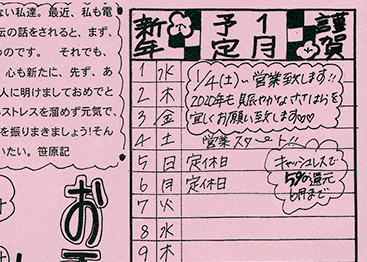 ない私達。最近、私も電
話の話をされると、まず、
のです。 それでも、
心も新たに、先ず、あ
人に明けましておめでと
ストレスを溜めず元気で、
を振りまきましょう!そん
いたい。笹原記
新年 予定 1月 謹賀
1 水
2 木
3 金
4 土 営業スタート!!
5 日 定休日
6 月 定休日
7 火
8 水
9 木
1/4(土)〜営業致します!!
2020年も賑やかなささはらを
宜しくお願い致します♡♡
キャッシュレスで
5%還元
6月まで
お